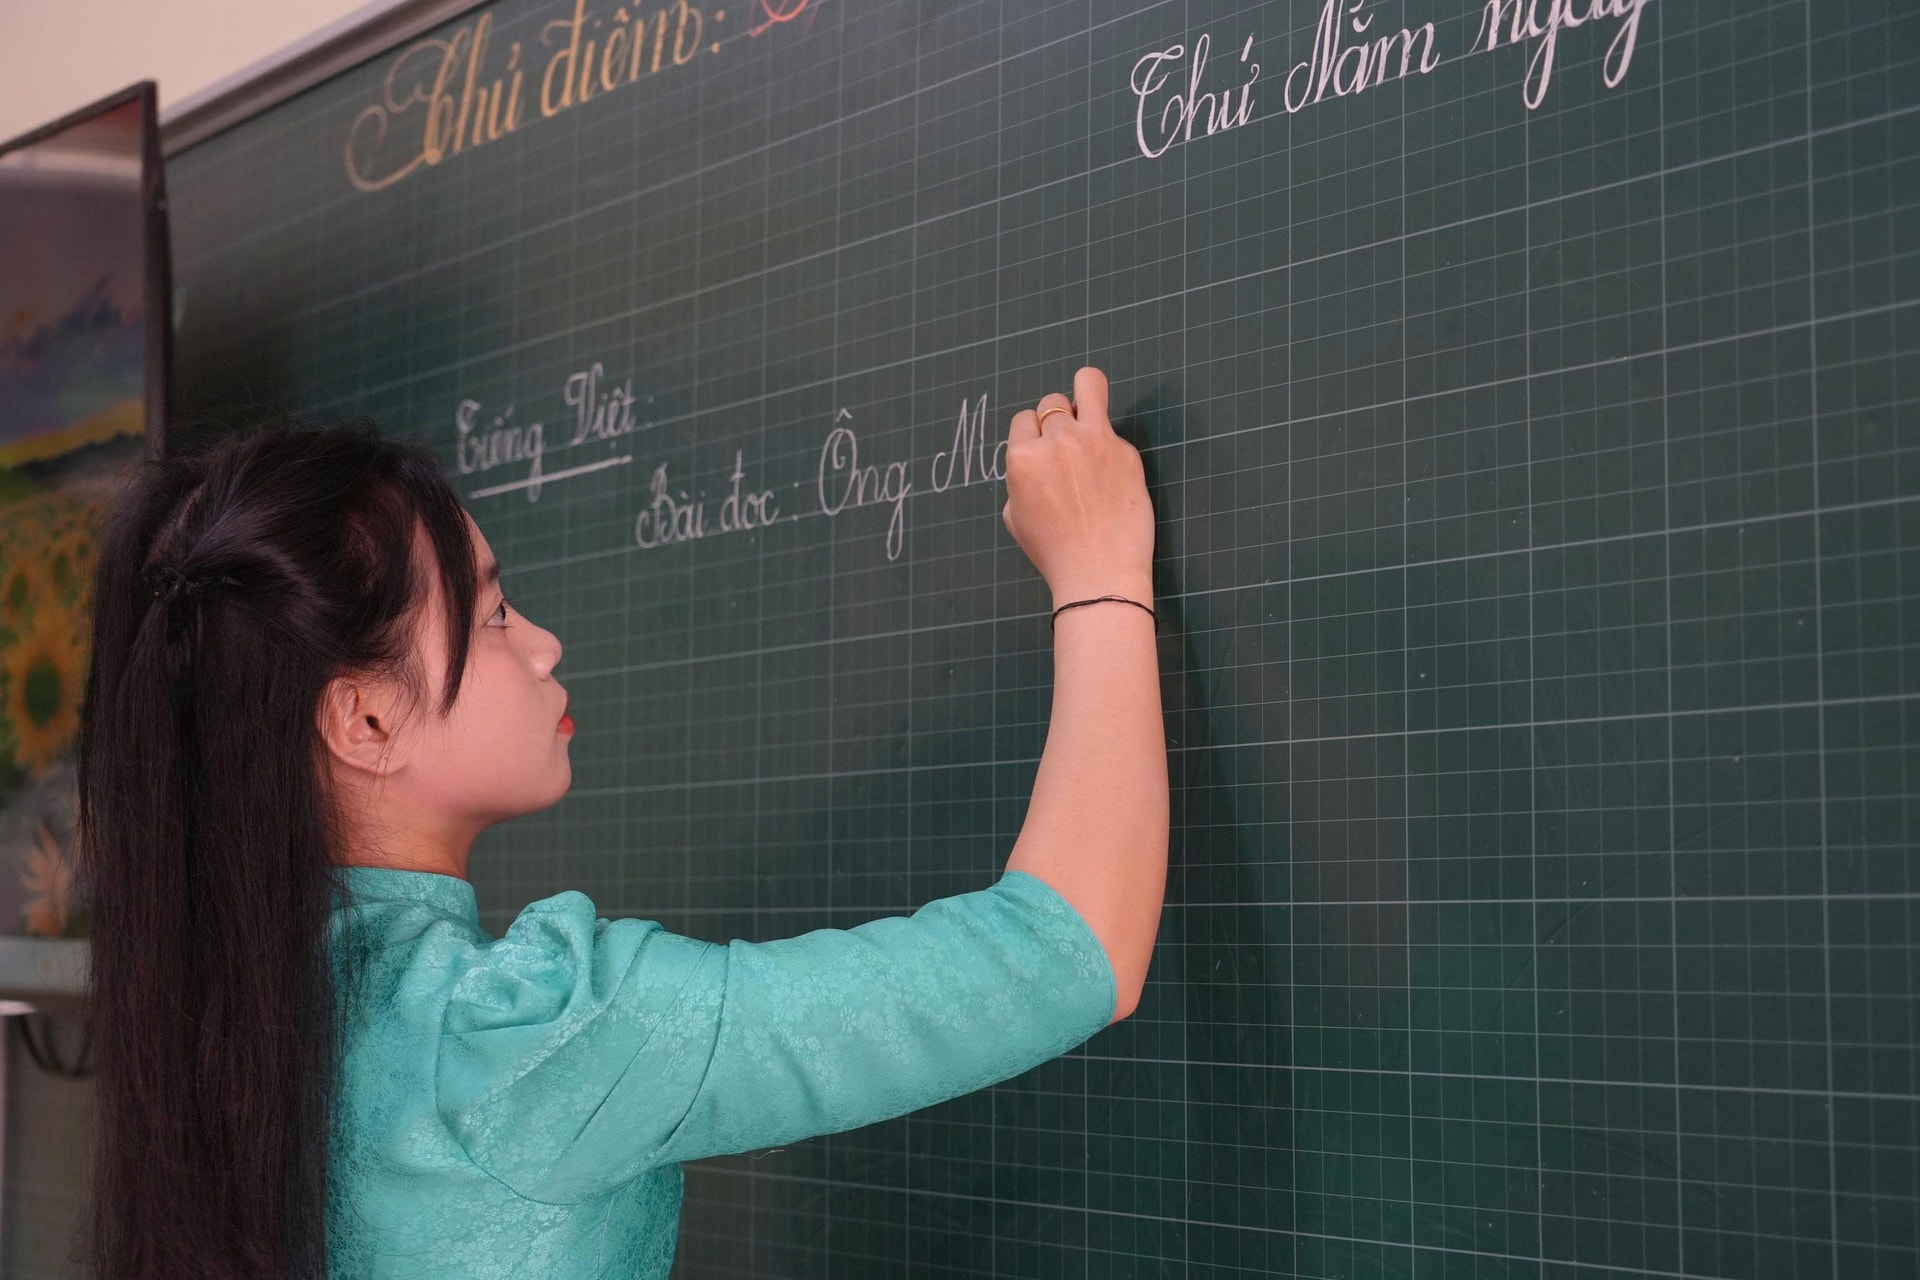 Chủ điểm:
Thứ Năm ngày
Tiếng Việt:
Bài đọc: Ông